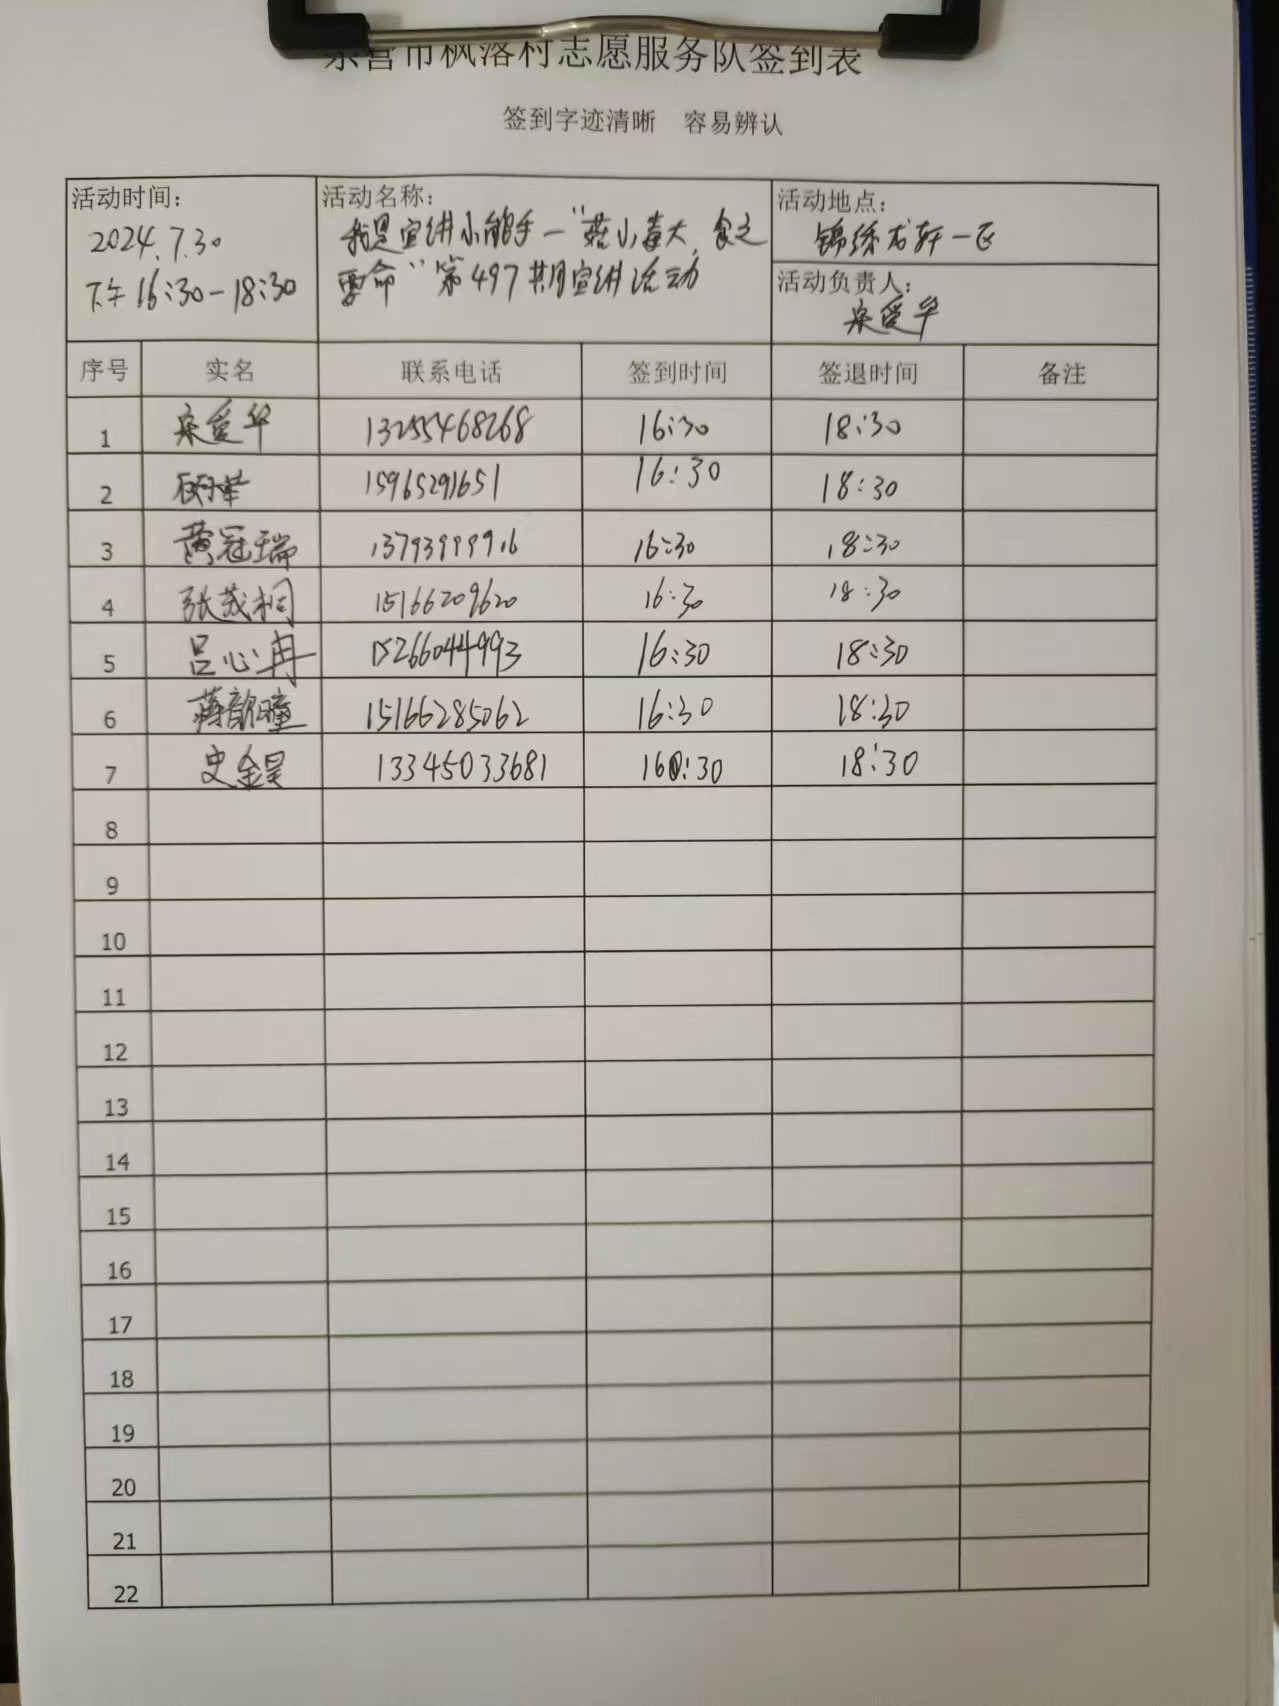 东营市枫落村志愿服务队签到表
签到字迹清晰 容易辨认
活动时间：
2024.7.30
下午16:30-18:30
活动名称：
我是宣讲小能手—"菇小毒大，食之
要命"第497期宣讲活动
活动地点：
锦绣龙轩一区
活动负责人：
宋爱华
序号 实名 联系电话 签到时间 签退时间 备注
1 宋爱华 13255468268 16:30 18:30
2 15965291651 16:30 18:30
3 黄冠瑞 13793999916 16:30 18:30
4 张茂桐 15166209620 16:30 18:30
5 吕心冉 15266044993 16:30 18:30
6 蒋韶瞳 15166285062 16:30 18:30
7 史金昊 13345033681 160:30 18:30
8
9
10
11
12
13
14
15
16
17
18
19
20
21
22